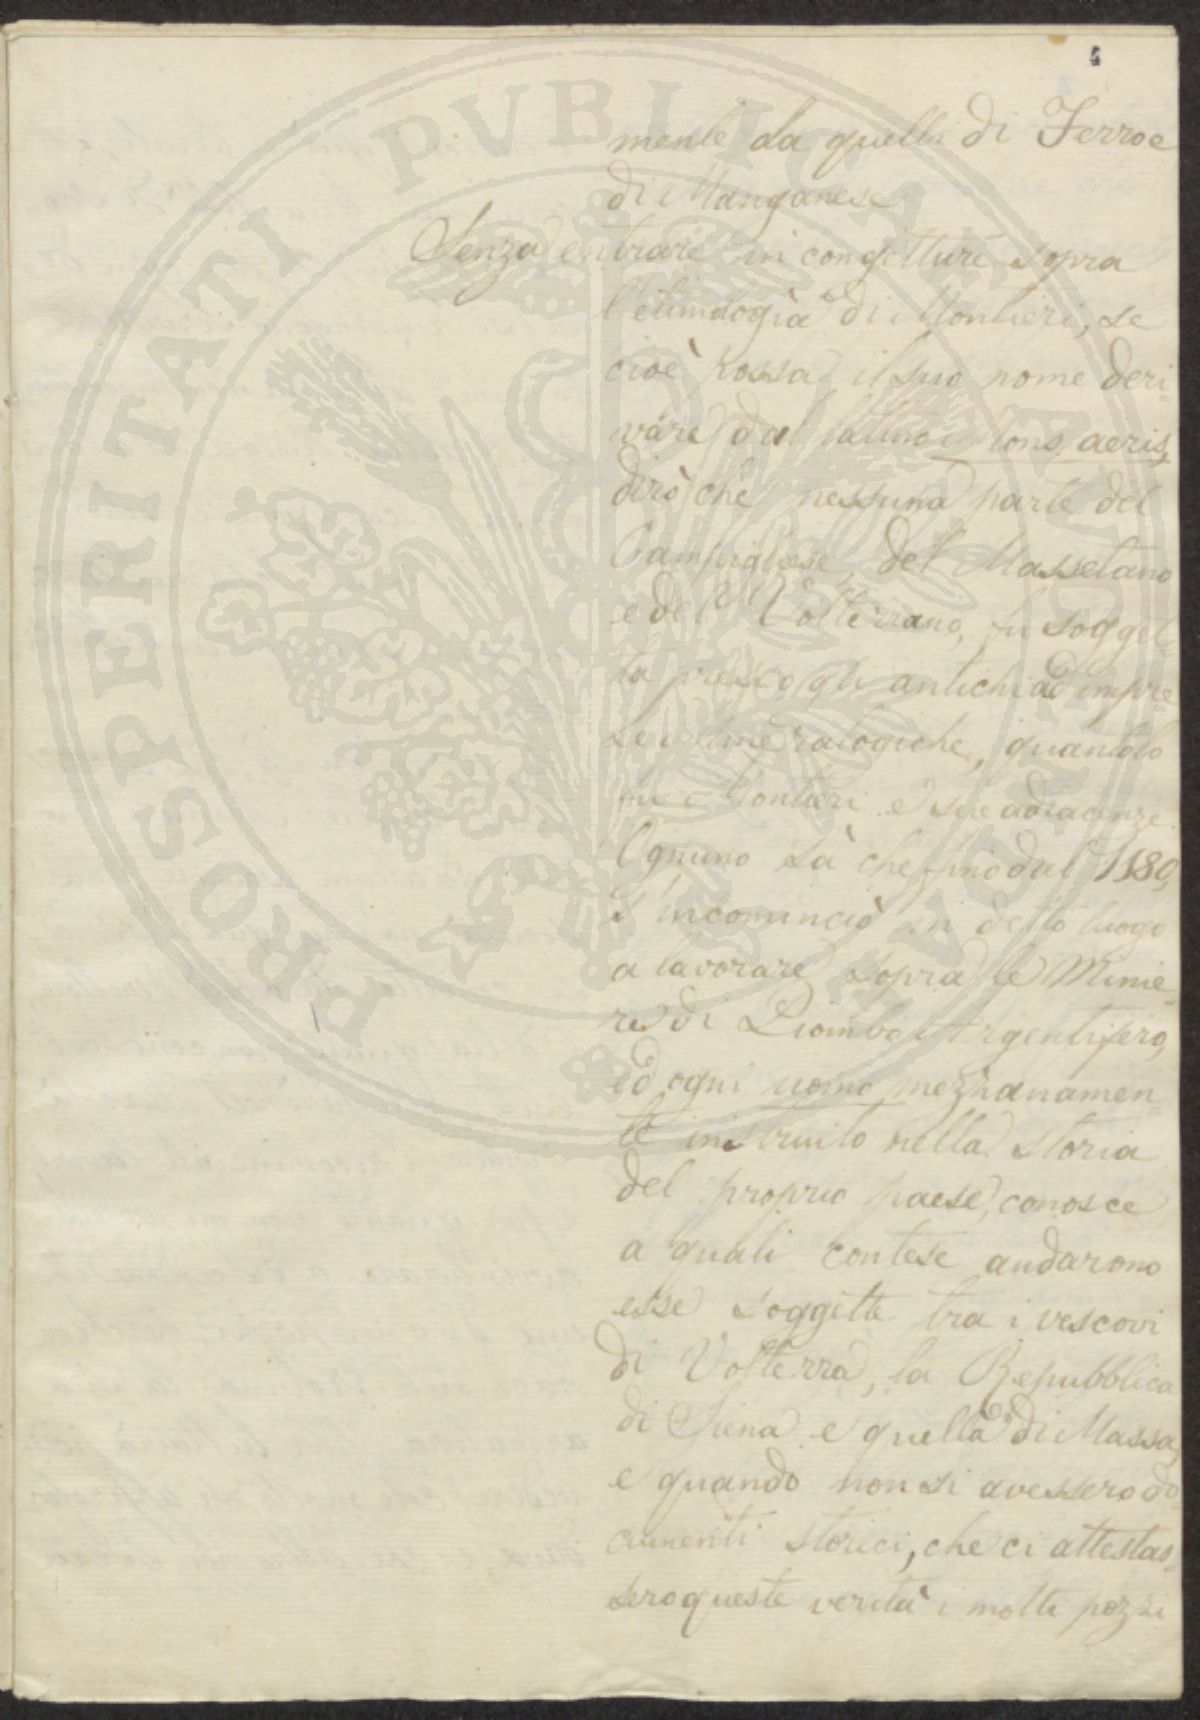 4
mente da quelle di Ferro e
di Manganese
Senza entrare in congetture sopra
l'etimologia di Montieri, se
cioè possa il suo nome deri-
vare dal latino Mons aeris,
dirò che nessuna parte del
Campigliese del Massetano
e del Volterrano, fu sogget-
ta presso gli antichi ad impre-
se Mineralogiche, quantolo
fu Montieri e sue adiacenze
Ognuno sà che fino dal 1180,
s'incominciò in detto luogo
a lavorare sopra le Minie-
re di Piombo Argentifero,
ed ogni uomo mezzanamen-
te instruito nella storia
del proprio paese, conosce
a quali contese andarono
esse soggette tra i vescovi
di Volterra, la Repubblica
di Siena e quella di Massa,
e quando non si avessero do-
cumenti storici, che ci attestas-
sero queste verità i molti pozzi
PROSPERITATI PVBLICAE AVGENDAE